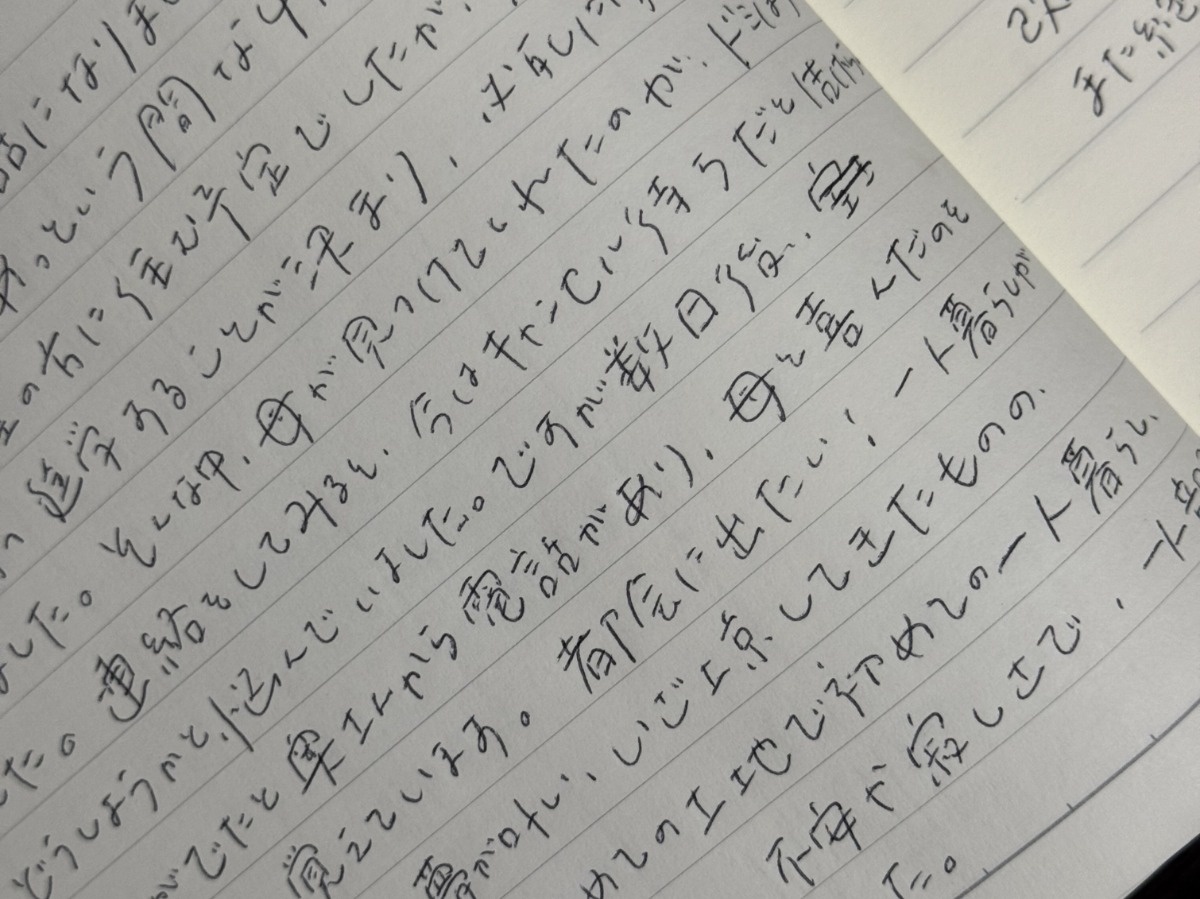 になりまし
あっという間な
の方に住む予定でしたが、
進学することが決まり、必死に
ました。そんな中、母が見つけてくれたのが、ドミ
した。連絡をしてみると、今はキャンセル待ちだと
どうしようかと悩んでいました。ですが数日後、空
がでたと から電話があり、母と喜んだのを
覚えています。都会に出たい！一人暮らしが
夢が叶い、いざ上京してきたものの、
めての土地で初めての一人暮らし、
不安や寂しさで、一人
た。
次
また